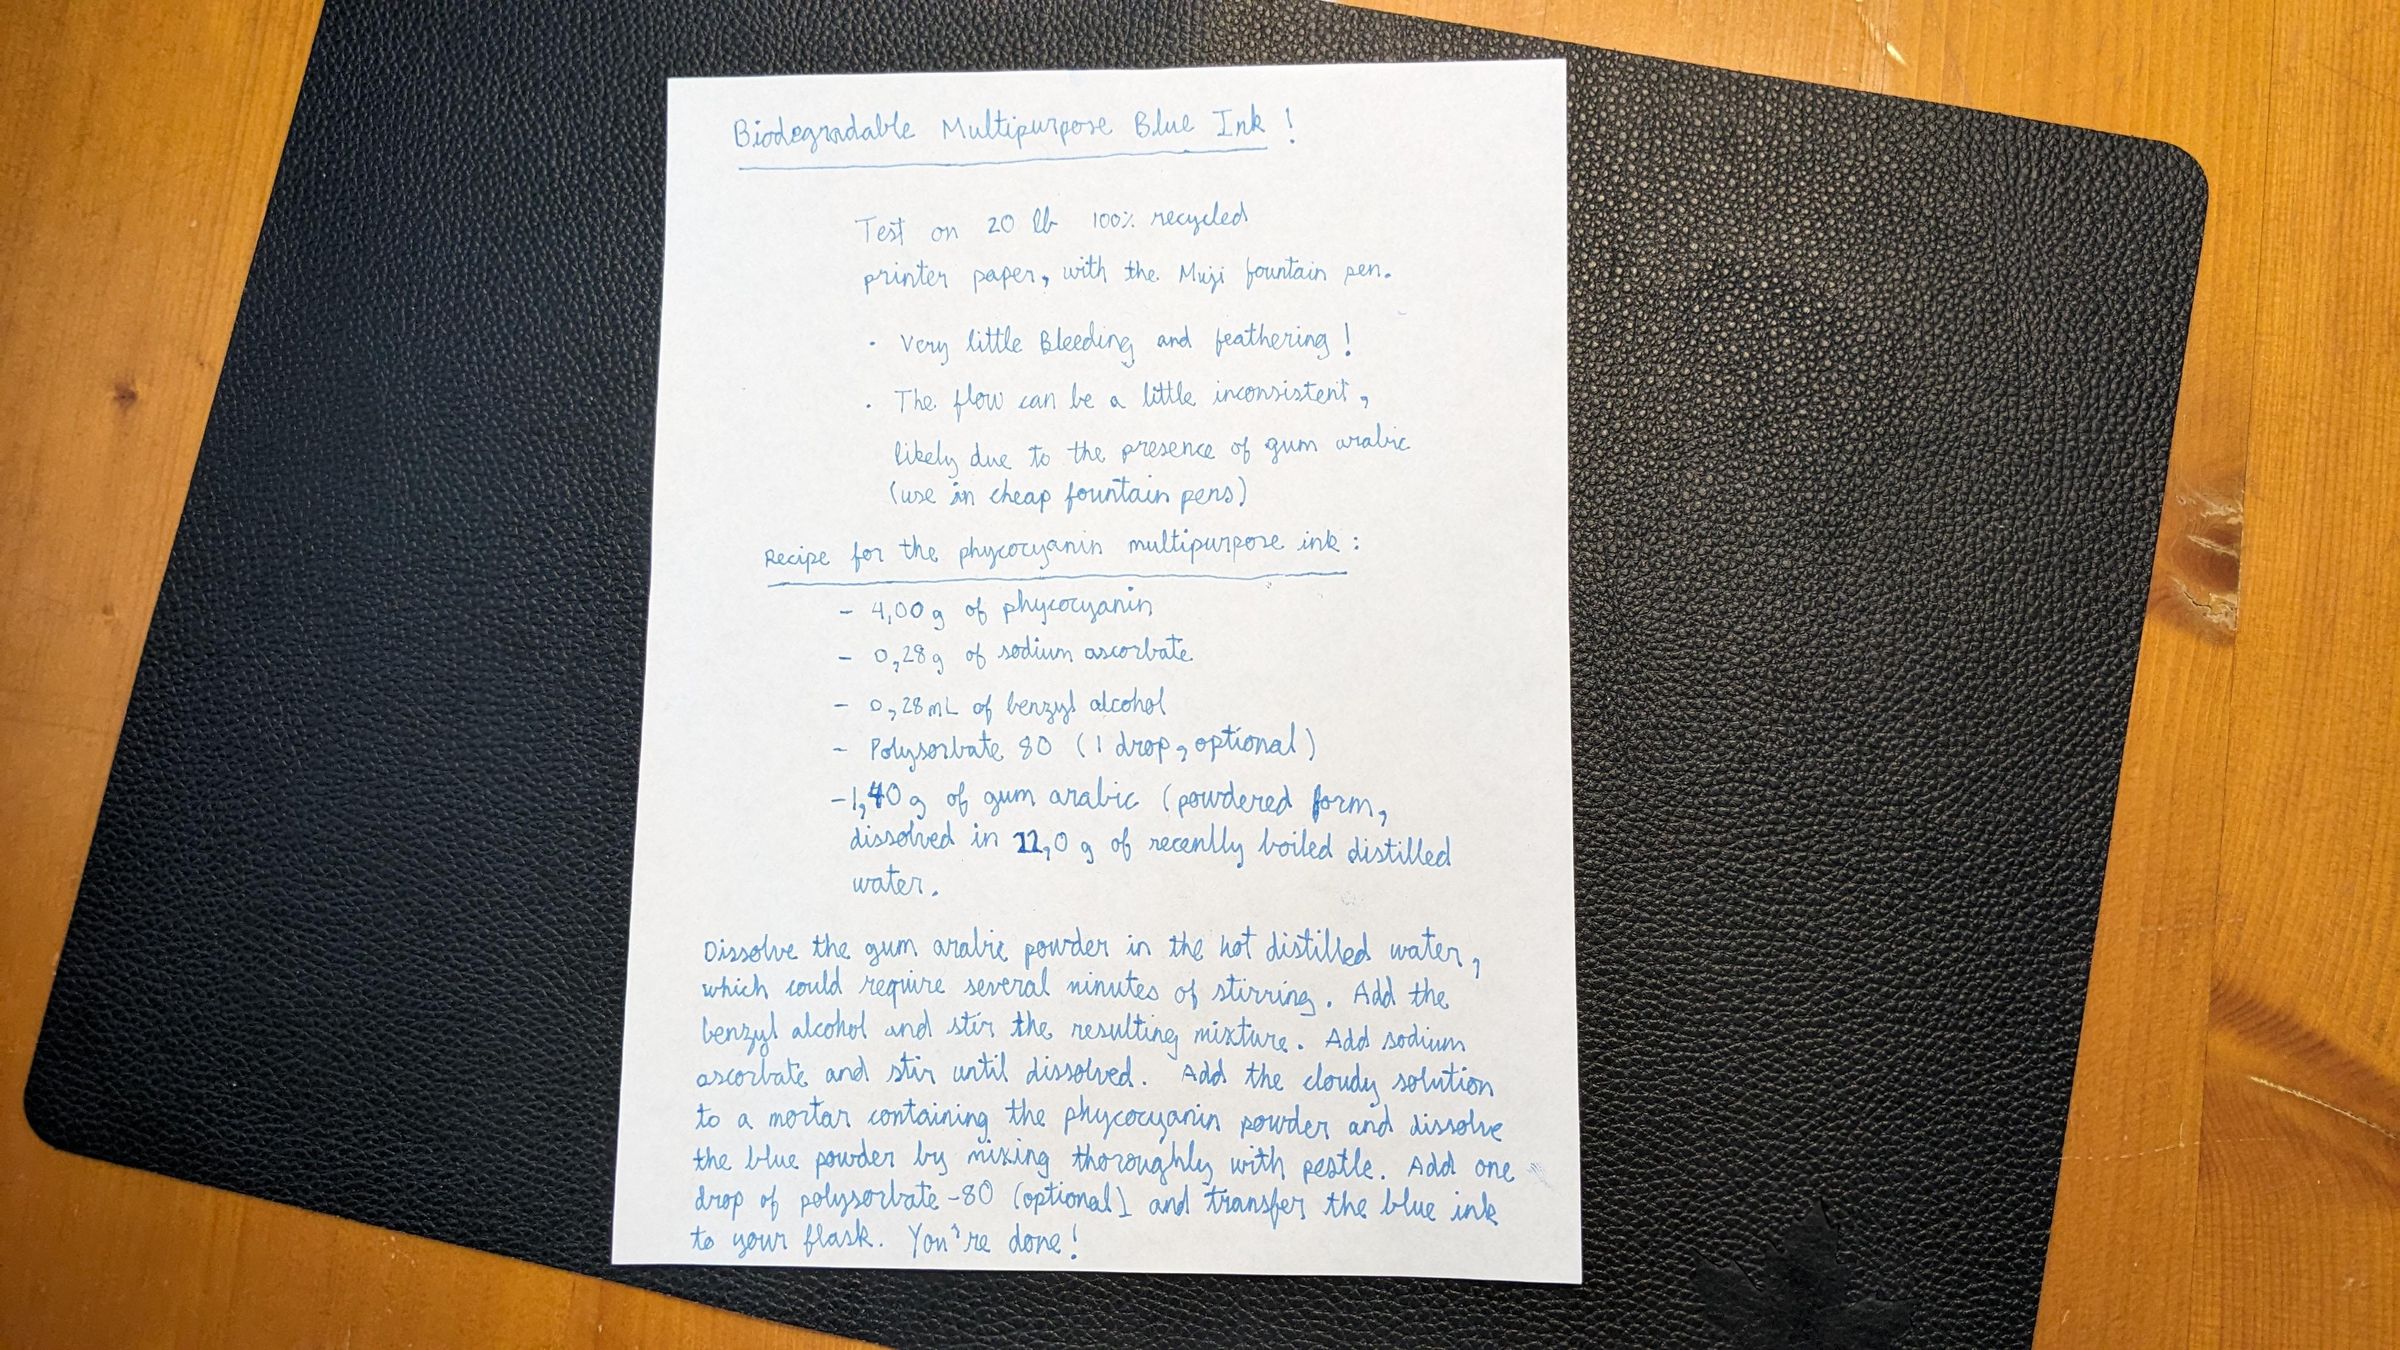 Biodegradable Multipurpose Blue Ink!
Test on 20 lb 100% recycled
printer paper, with the Muji fountain pen.
· Very little Bleeding and feathering!
· The flow can be a little inconsistent,
likely due to the presence of gum arabic
(use in cheap fountain pens)
Recipe for the phycocyanin multipurpose ink:
- 4,00 g of phycocyanin
- 0,28 g of sodium ascorbate
- 0,28 mL of benzyl alcohol
- Polysorbate 80 (1 drop, optional)
- 1,40 g of gum arabic (powdered form,
dissolved in of recently boiled distilled
water.
Dissolve the gum arabic powder in the hot distilled water,
which could require several minutes of stirring. Add the
benzyl alcohol and stir the resulting mixture. Add sodium
ascorbate and stir until dissolved. Add the cloudy solution
to a mortar containing the phycocyanin powder and dissolve
the blue powder by mixing thoroughly with pestle. Add one
drop of polysorbate-80 (optional) and transfer the blue ink
to your flask. You're done!